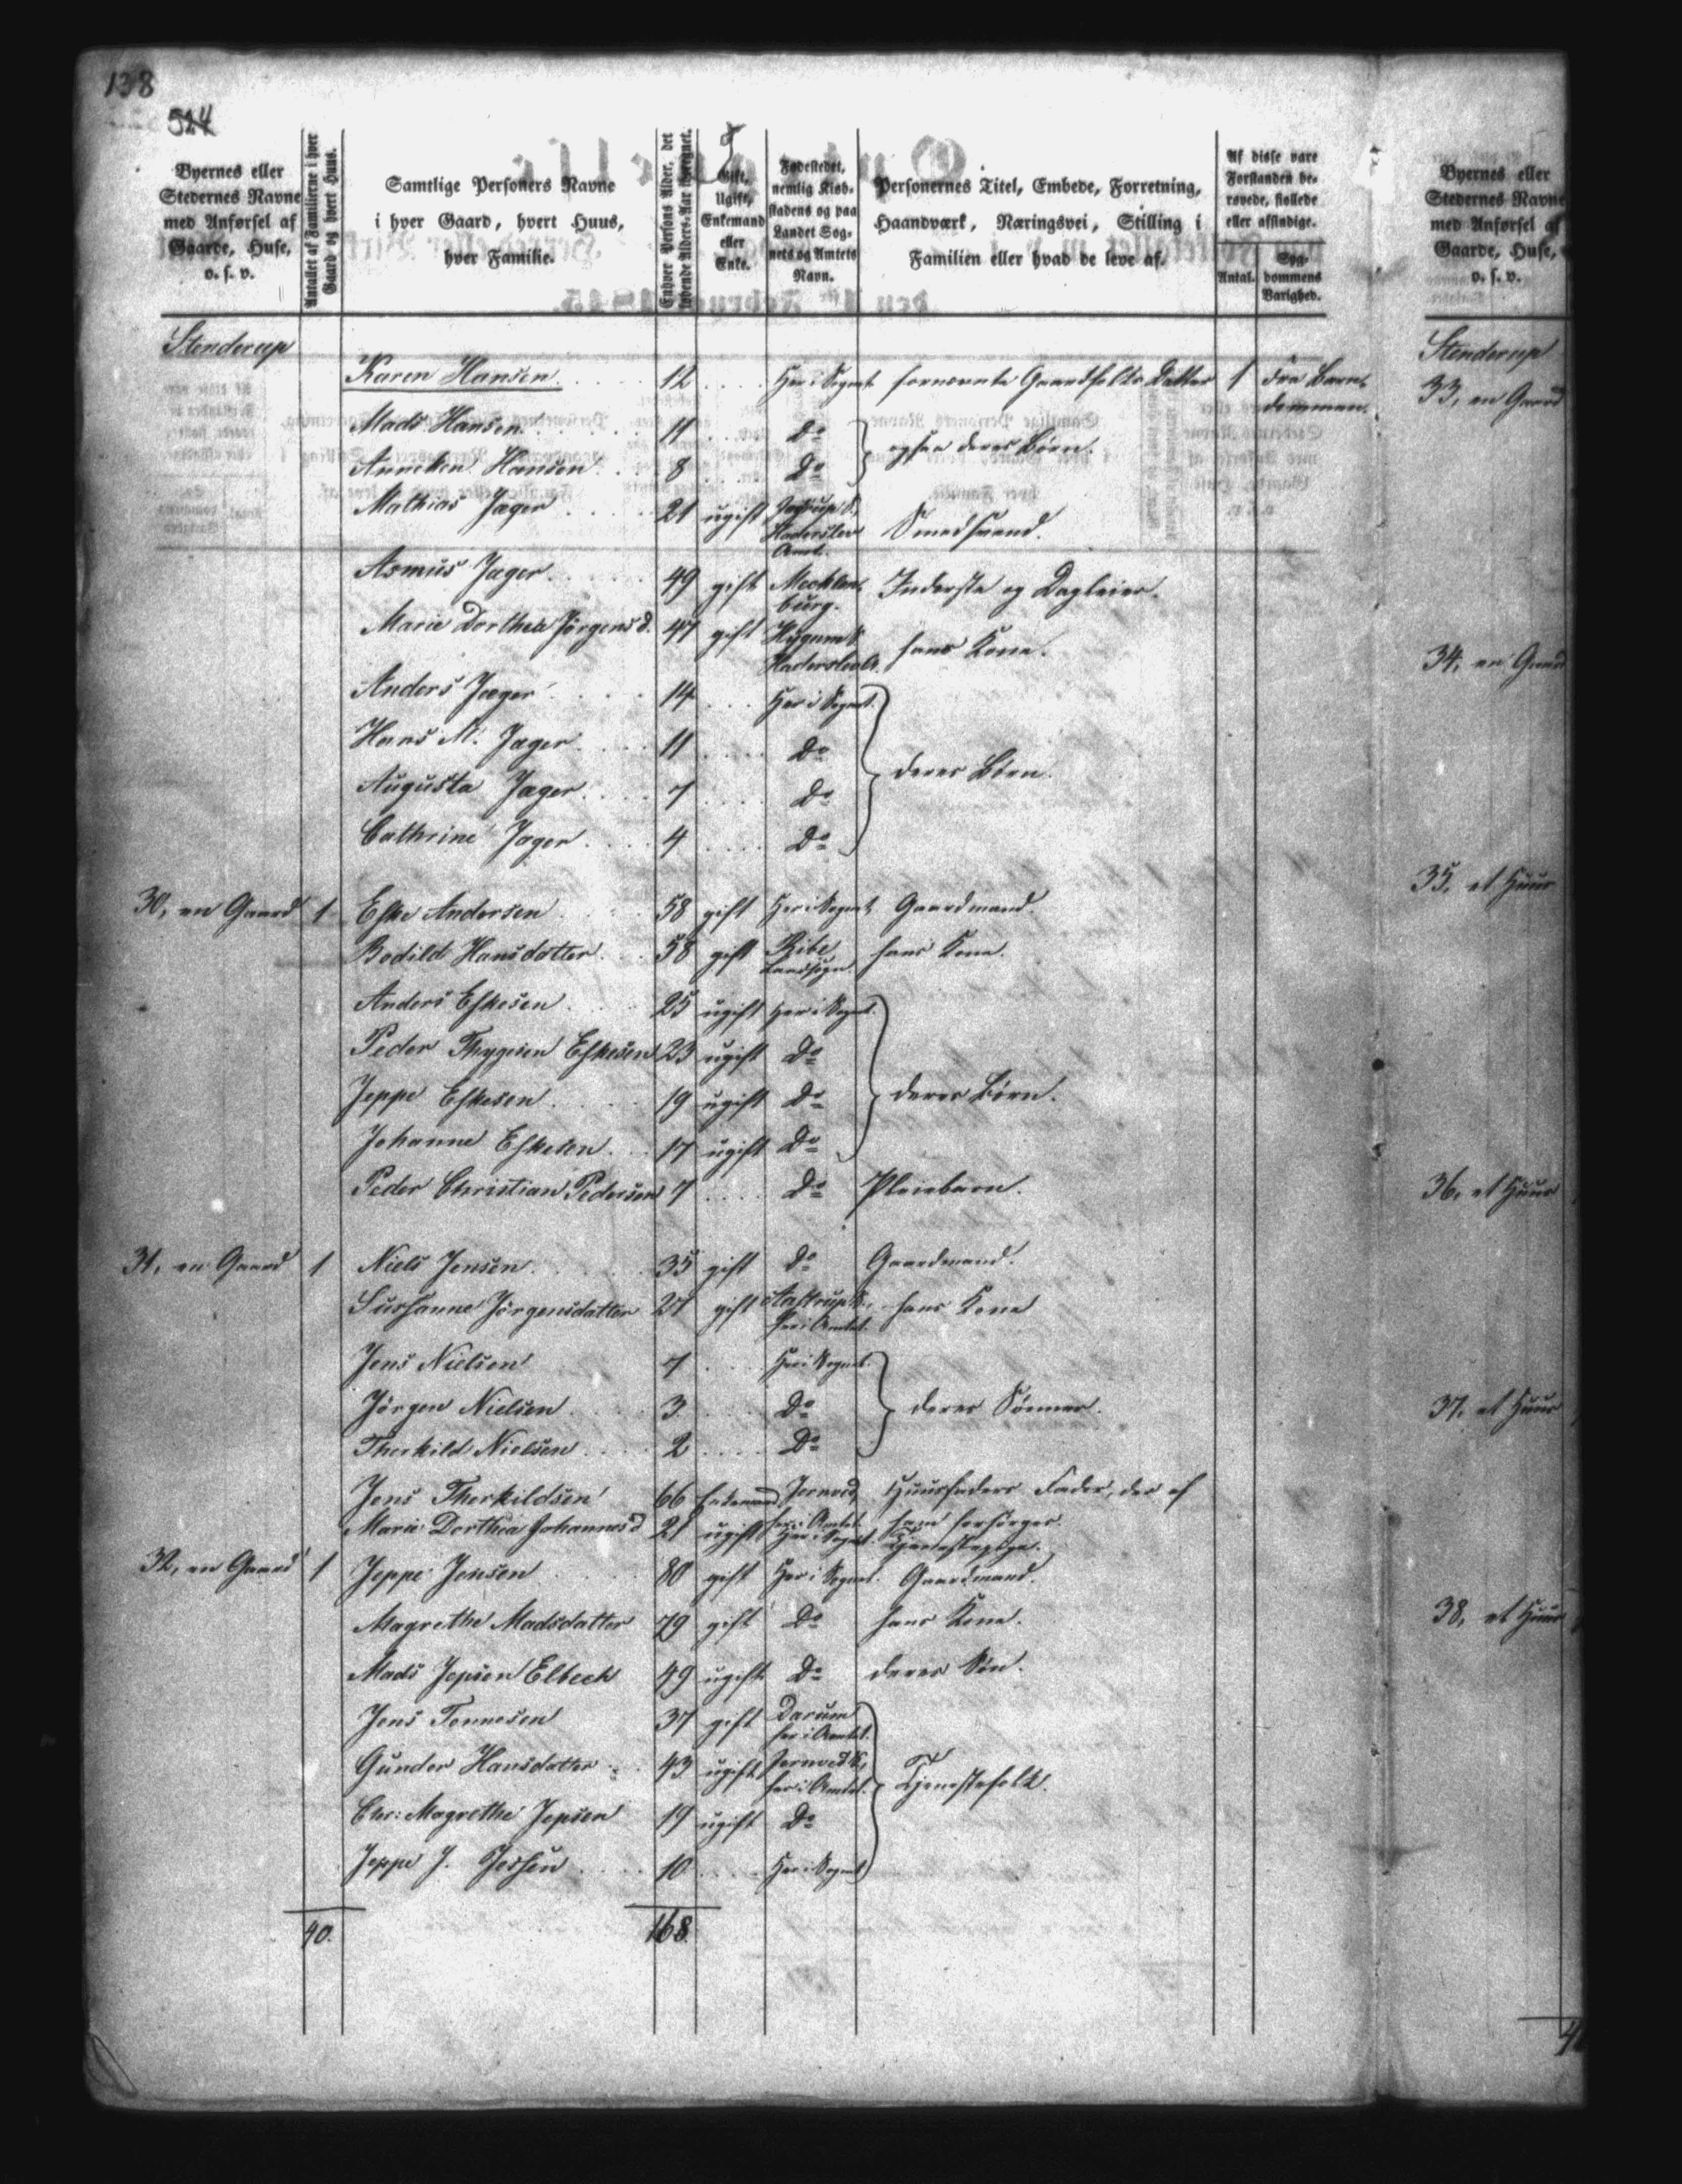 138
524
Byernes eller Stedernes Navne med Anførsel af Gaarde, Huse, o. s. v.
Antallet af Familierne i hver Gaard og hvert Huus.
Samtlige Personers Navne i hver Gaard, hvert Huus, hver Familie.
Enhver Persons Alder, det løbende Alders-Aar iberegnet.
Gift, Ugift, Enkemand eller Enke.
Fødestedet, nemlig Kiøbstadens og paa Landet Sognets og Amtets Navn.
Personernes Titel, Embede, Forretning, Haandværk, Næringsvei, Stilling i Familien eller hvad de leve af.
Af disse vare Forstanden berøvede, stollede eller afsindige.
Antal.
Syg-dommens Varighed.
Stenderup
Karen Hansen 12 Her i Sognet fornævnte Gaardfolks Datter 1 fra Barn-
dommen.
Mads Hansen 11 Do
Anneken Hansen 8 Do ogsaa deres Børn.
Mathias Jæger 21 ugift Jagrup S., Haderslev Amt. Smedsvend.
Asmus Jæger 49 gift Mecklen-
burg. Inderste og Dagleier.
Marie Dorthea Jörgensd. 47 gift Hygum S. Haderslev A. hans Kone.
Anders Jæger 14 Her i Sognet.
Hans N. Jæger 11 Do
deres Børn.
Augusta Jæger 7 Do
Cathrine Jæger 4 Do
30, en Gaard 1 Eske Andersen 58 gift Her i Sognet Gaardmand.
Bodild Hansdatter 58 gift Ribe Landsogn. hans Kone.
Anders Eskesen 25 ugift Her i Sognet.
Peder Thygesen Eskesen 23 ugift Do
Jeppe Eskesen 19 ugift Do deres Børn.
Johanne Eskesen 17 ugift Do
Peder Christian Pedersen 7 Do Pleiebarn.
31, en Gaard 1 Niels Jensen 35 gift Do Gaardmand.
Sussanne Jörgensdatter 27 gift Aastrup S., her i Amtet. hans Kone
Jens Nielsen 7 Her i Sognet.
Jörgen Nielsen 3 Do deres Sønner.
Therkild Nielsen 2 Do
Jens Therkildsen 66 Enkemand Jernved, her i Amtet. Huusfaders Fader, der af
ham forsørges.
Marie Dorthea Johannesd 21 ugift Her i Sognet. Tjenestepige.
32, en Gaard 1 Jeppe Jensen 80 gift Her i Sognet. Gaardmand.
Magrethe Madsdatter 79 gift Do hans Kone.
Mads Jepsen Elbech 49 ugift Do deres Søn.
Jens Tonnesen 37 gift Darum her i Amtet.
Gunder Hansdatter 43 ugift Jernved S., her i Amtet. Tjenestefolk.
Chr: Magrethe Jepsen 19 ugift Do
Jeppe J. Jessen 10 Her i Sognet
40. 168.
Byernes eller
Stedernes Navne
med Anførsel af
Gaarde, Huse,
o. s. v.
Stenderup
33, en Gaard
34, en Gaard
35, et Huus
36, et Huus
37, et Huus
38, et Huus